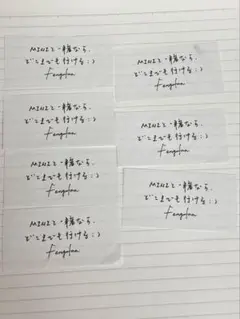 MINIと一緒なら、
どこまでも行ける:)
Fengfan
MINIと一緒なら、
どこまでも行ける:)
Fengfan
MINIと一緒なら、
どこまでも行ける:)
Fengfan
MINIと一緒なら、
どこまでも行ける:)
Fengfan
MINIと一緒なら、
どこまでも行ける:)
Fengfan
MINIと一緒なら、
どこまでも行ける:)
Fengfan
MINIと一緒なら、
どこまでも行ける:)
Fengfan